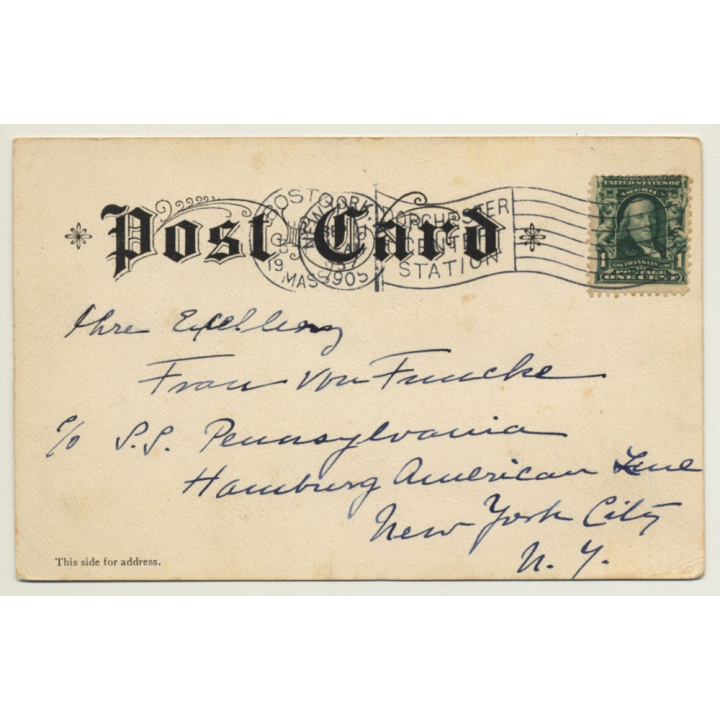 Post Card
BOSTON
MASS. 1905
DORCHESTER
CENTER
STATION
UNITED STATES OF
AMERICA
1 FRANKLIN 1
POSTAGE
ONE CENT
Ihre Excellenz
Frau von Funcke
c/o S.S. Pennsylvania
Hamburg American Line
New York City
N. Y.
This side for address.